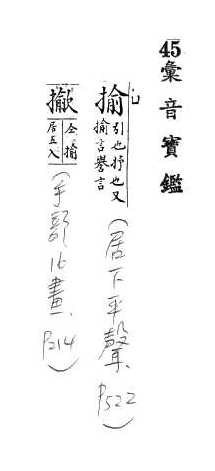 45彙音寶鑑
揄 引也抒也又
揄言譽言
(居下平聲 P522)
仝揄
居五入
(手部16畫、P214)